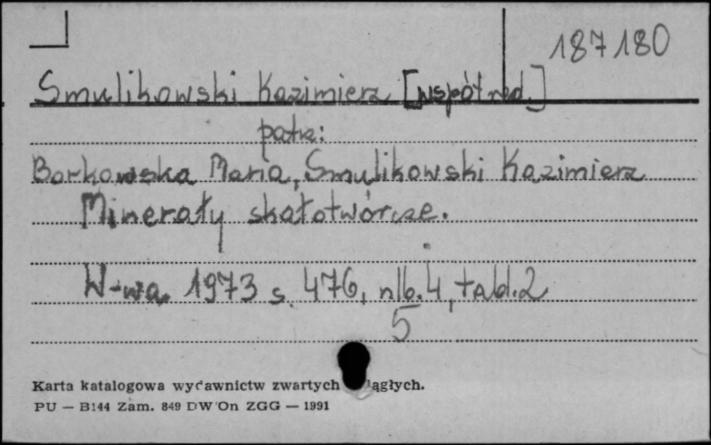 187180
Smulikowski Kazimierz [współred.]
patrz:
Borkowska Maria, Smulikowski Kazimierz
Minerały skałotwórcze.
W-wa 1973 s. 476, nlb. 4, tabl. 2
5
Karta katalogowa wydawnictw zwartych ciągłych.
PU — B144 Zam. 849 DW On ZGG — 1991